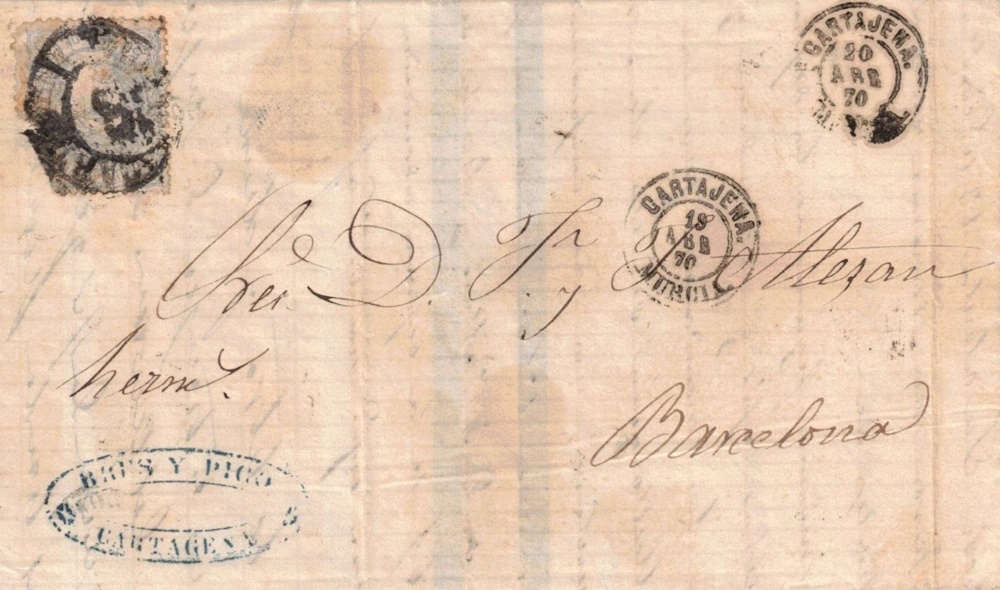 CARTAJENA.
20
ABR
70
CARTAJENA.
19
ABR
70
MURCIA
Sres. D. J. y J. Alexan
herms.
Barcelona
BRUS Y PIGO
CARTAGENA